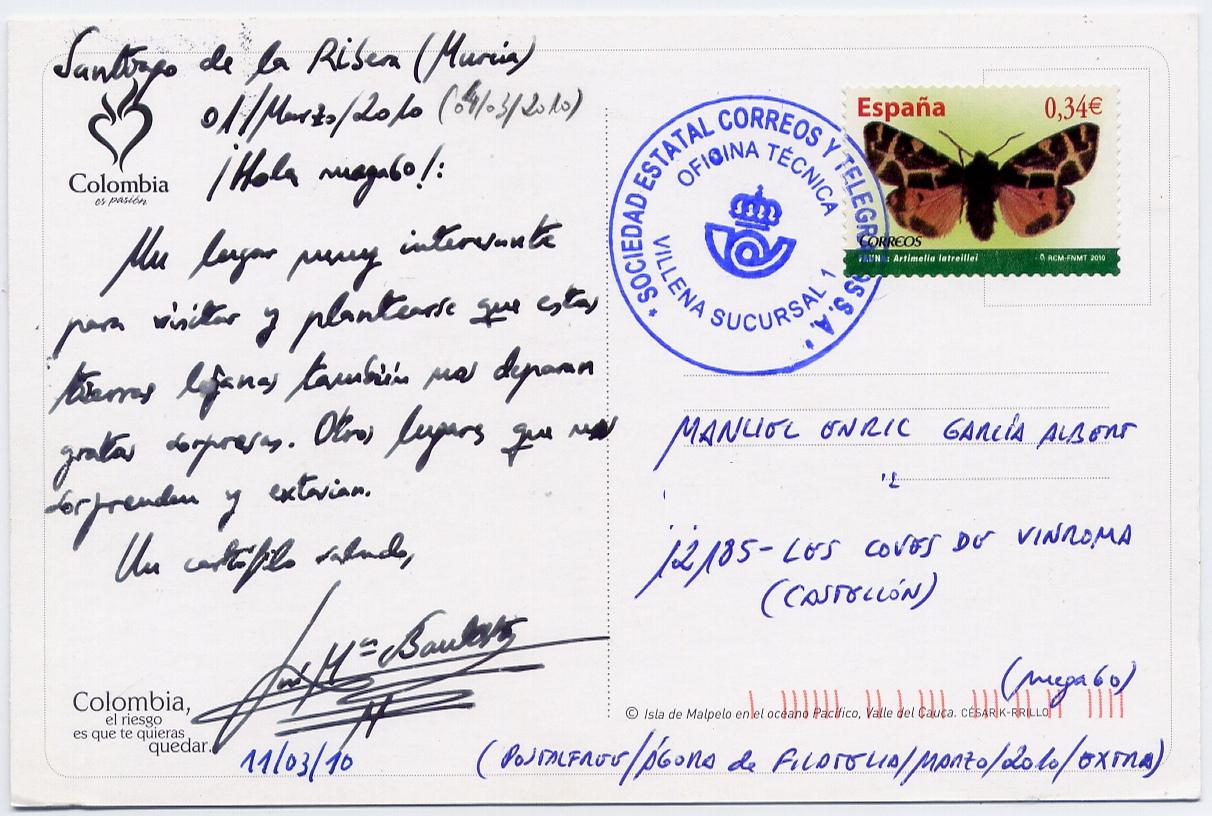 Santiago de la Ribera (Murcia)
01/Marzo/2010 (04/03/2010)
¡Hola mega60!:
Colombia
es pasión
Un lugar muy interesante
para visitar y plantearse que estas
tierras lejanas también nos deparan
gratas sorpresas. Otros lugares que nos
sorprenden y extasian.
Un cartófilo saludo,
José Mª Bautista
Colombia,
el riesgo
es que te quieras
quedar.
11/03/10
SOCIEDAD ESTATAL CORREOS Y TELEGRAFOS S.A.
OFICINA TÉCNICA
VILLENA SUCURSAL 1
España 0,34€
CORREOS
FAUNA: Artimelia latreillei RCM-FNMT 2010
MANUEL ENRIC GARCÍA ALBERT
12185- LES COVES DE VINROMA
(CASTELLÓN)
(mega60)
© Isla de Malpelo en el océano Pacífico, Valle del Cauca. CÉSAR K-RRILLO
(POSTALFREE/ÁGORA de FILATELIA/MARZO/2010/EXTRA)